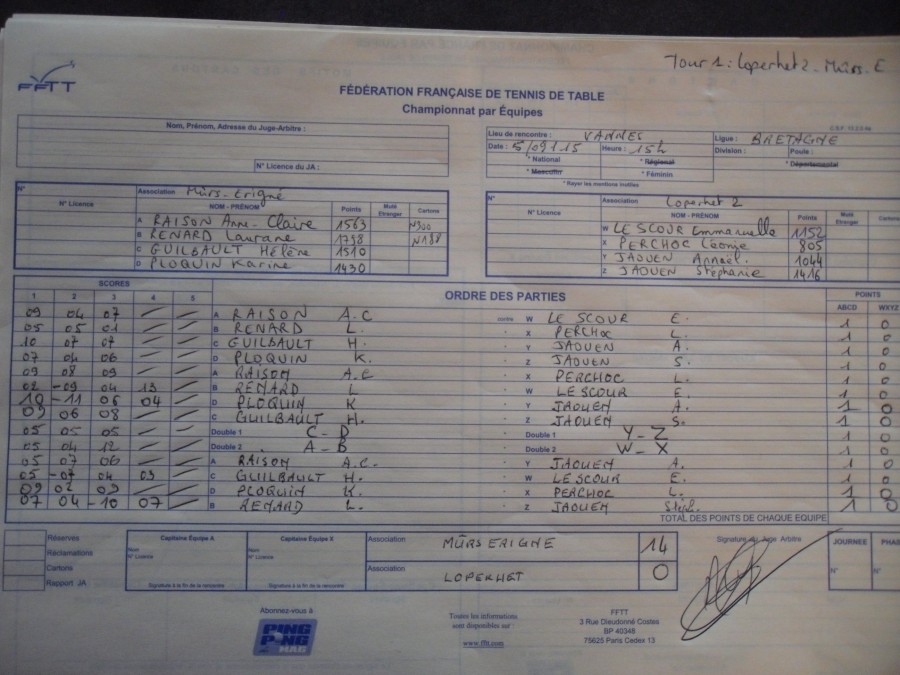 Tour 1 : Loperhet 2 - Mûrs. E
FFTT
FÉDÉRATION FRANÇAISE DE TENNIS DE TABLE
Championnat par Équipes
Nom, Prénom, Adresse du Juge-Arbitre :
N° Licence du JA :
Lieu de rencontre : VANNES
Ligue : BRETAGNE
Date : 5/09/15 Heures : 15h
Division : Poule :
* National * Régional * Départemental
* Masculin * Féminin
* Rayer les mentions inutiles
N° Association Mûrs-Erigné
N° Licence NOM - PRÉNOM Points Muté Etranger Cartons
A RAISON Anne-Claire 1563 N°300
B RENARD Laurane 1798 N°188
C GUILBAULT Hélène 1510
D PLOQUIN Karine 1430
N° Association Loperhet 2
N° Licence NOM - PRÉNOM Points Muté Etranger Cartons
W LE SCOUR Emmanuelle 1152
X PERCHOC Léonie 805
Y JAOUEN Annaël 1044
Z JAOUEN Stéphanie 1416
SCORES ORDRE DES PARTIES POINTS
1 2 3 4 5 ABCD WXYZ
09 04 07 A RAISON A.C contre W LE SCOUR E. 1 0
05 05 01 B RENARD L. X PERCHOC L. 1 0
10 07 07 C GUILBAULT H. Y JAOUEN A. 1 0
07 04 06 D PLOQUIN K. Z JAOUEN S. 1 0
09 08 09 A RAISON A.C X PERCHOC L. 1 0
02 -09 04 13 B RENARD L W LE SCOUR E. 1 0
10 -11 06 04 D PLOQUIN K Y JAOUEN A. 1 0
09 06 08 C GUILBAULT H. Z JAOUEN S. 1 0
05 05 05 Double 1 C-D Double 1 Y-Z 1 0
05 04 12 Double 2 A-B Double 2 W-X 1 0
05 07 06 A RAISON A.C. Y JAOUEN A. 1 0
05 -07 04 03 C GUILBAULT H. W LE SCOUR E. 1 0
09 02 03 D PLOQUIN K. X PERCHOC L. 1 0
07 04 -10 07 B RENARD L. Z JAOUEN Steph. 1 0
TOTAL DES POINTS DE CHAQUE EQUIPE
Réserves
Réclamations
Cartons
Rapport JA
Capitaine Équipe A
Nom
N° Licence
Signature à la fin de la rencontre
Capitaine Équipe X
Nom
N° Licence
Signature à la fin de la rencontre
Association MÛRS ERIGNE 14
Association LOPERHET 0
Signature du Juge Arbitre
JOURNEE PHAS
N° N°
Abonnez-vous à
PING PONG MAG
Toutes les informations
sont disponibles sur :
www.fftt.com
FFTT
3 Rue Dieudonné Costes
BP 40348
75625 Paris Cedex 13